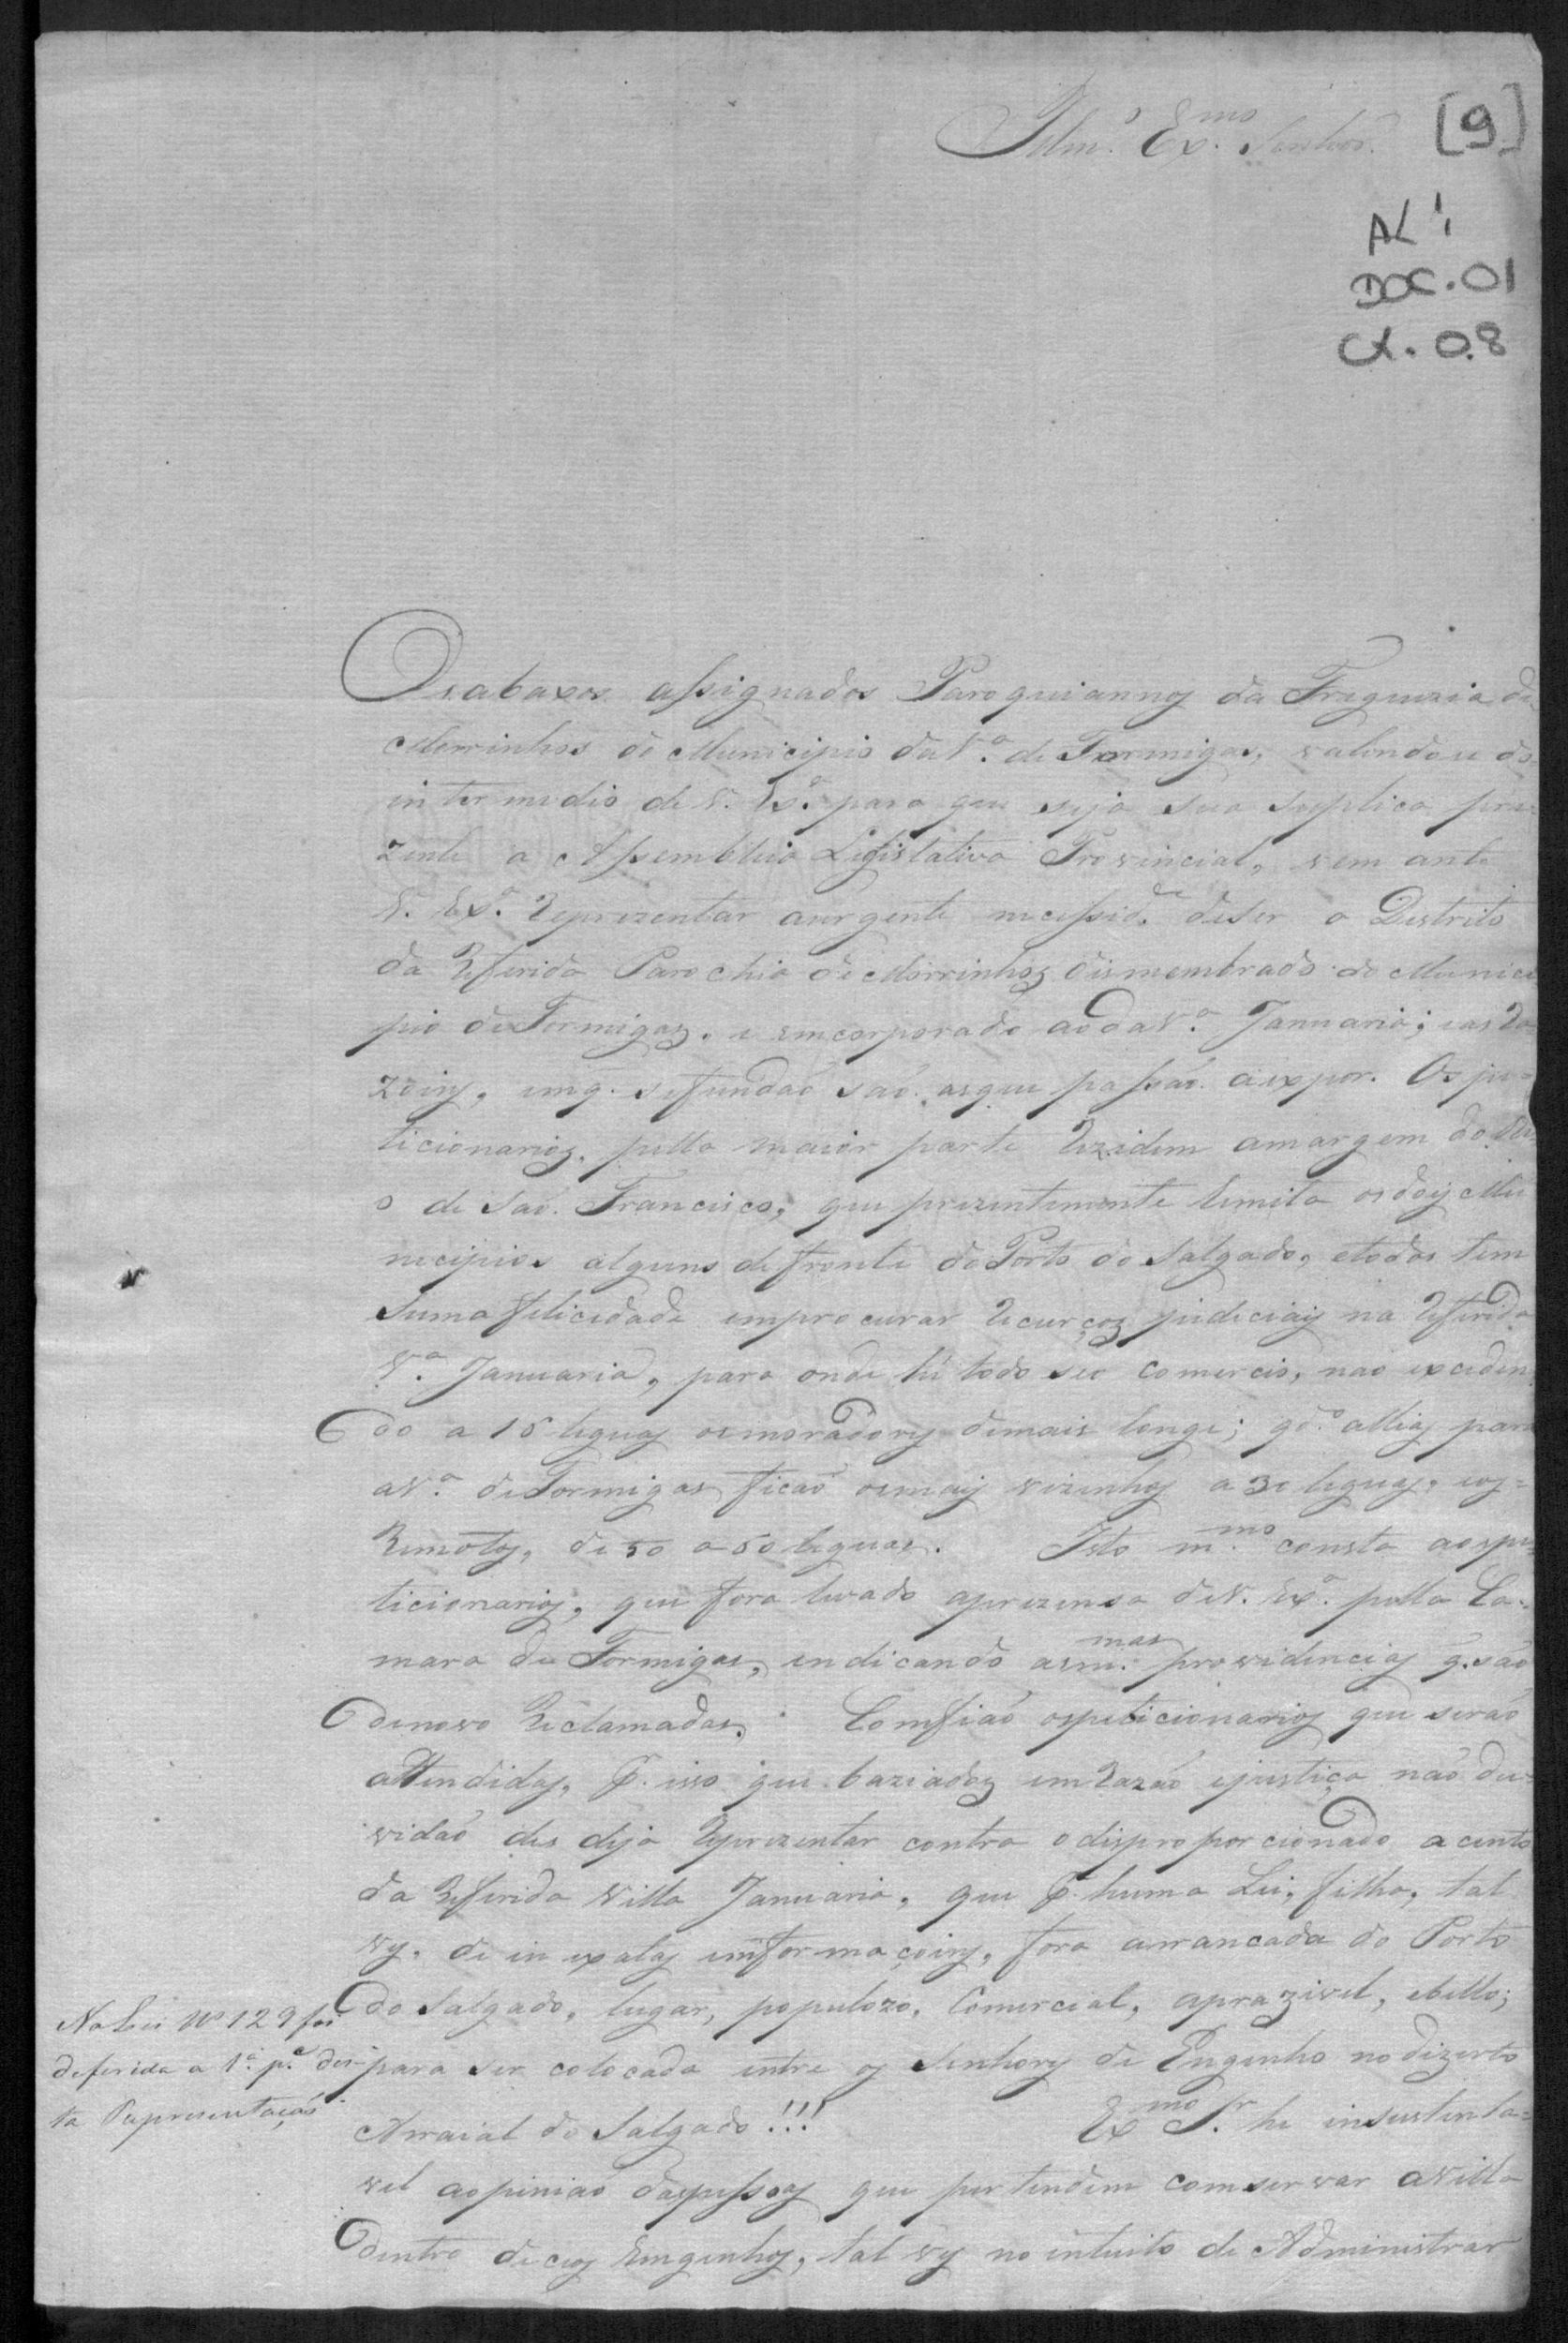 Illm.º Ex.mo Senhor.
[9]
AL 1
DOC. 01
CX. 08
Os abaxos assignados Paroquiannos da Freguezia de
Morrinhos do Municipio da V.ª de Formigas, valendose do
intermedio de V. Ex.ª para que seja sua suplica pre-
zente a Assembleia Legislativa Provincial, vem ante
V. Ex.ª Reprezentar aurgente necessid.e deser o Destrito
da Referida Parochia de Morrinhos dismembrado do Munici
pio de Formigas, e emcorporado aoda V.ª Januaria; eas Ra
zoins, emq. sefundaó saó asque passaó aexpor. Os pe-
ticionarios, pella maior parte Rezidem amargem do Ri
o de Saó Francisco, que prezentemente lemita osdois Mu
necipios alguns defronte do Porto do Salgado, etodos tem
suma felicidade emprocurar Recurços judiciais na Referida
V.ª Januaria, para onde hé todo seo comercio, naó exceden
do a 15 leguas osmoradores demais longe; qd.º allias para
aV.ª de Formigas ficaó osmais vizinhos a 30 leguas, eos
Remotos, de 50 a 60 leguas. Isto m.mo consta aospe
ticionarios, que fora levado aprezensa de V. Ex.ª pella Ca-
mara de Formigas, endicando asm.mas providencias q. saó
denovo Reclamadas. Comfiaó ospeticionarios que seraó
attendidos, p. isso que baziados emRazaó ejustiça naó du-
vidaó des deja Reprezentar contra odisproporcionado acento
da Referida Villa Januaria, que p. huma Lei, filha, tal
vez, de inexatas emformaçoins, fora arrancada do Porto
do Salgado, lugar, populozo, Comercial, aprazivel, ebello;
para ser colocada entre os Senhores de Engenho no dizerto
Arraial do Salgado!!! Ex.mo Sr. he insustenta-
vel aopiniaó daspessoas que pertendem comservar aVilla
dentro deceos Emgenhos, tal vez no intuito de Administrar
Na Lei Nº 129 foi
deferida a 1.ª p.e des-
ta Representaçaó